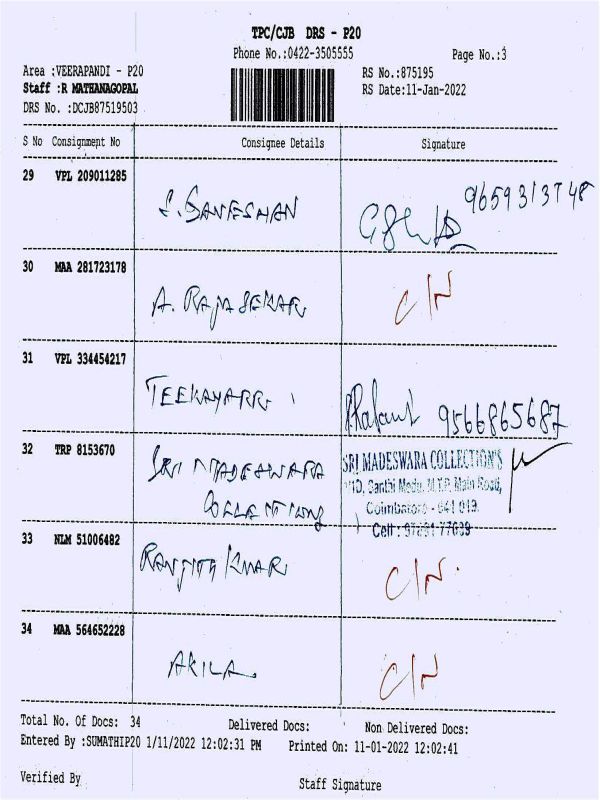 TPC/CJB DRS - P20
Phone No.:0422-3505555
Page No.:3
Area :VEERAPANDI - P20
RS No.:875195
Staff :R MATHANAGOPAL
RS Date:11-Jan-2022
DRS No. :DCJB87519503
S No Consignment No Consignee Details Signature
29 VPL 209011285
S. GANESHAN
30 MAA 281723178
A. RAJASEKAR
C/N
31 VPL 334454217
TEEKAYARR
9566865687
32 TRP 8153670
SRI MADESWARA
COLLECTIONS
SRI MADESWARA COLLECTION'S
Santhi Medu, M.T.P. Main Road,
Coimbatore - 641 019.
Cell :
33 NLM 51006482
RANJITH KUMAR
C/N.
34 MAA 564652228
AKILA
C/N
Total No. Of Docs: 34 Delivered Docs: Non Delivered Docs:
Entered By :SUMATHIP20 1/11/2022 12:02:31 PM Printed On: 11-01-2022 12:02:41
Verified By Staff Signature